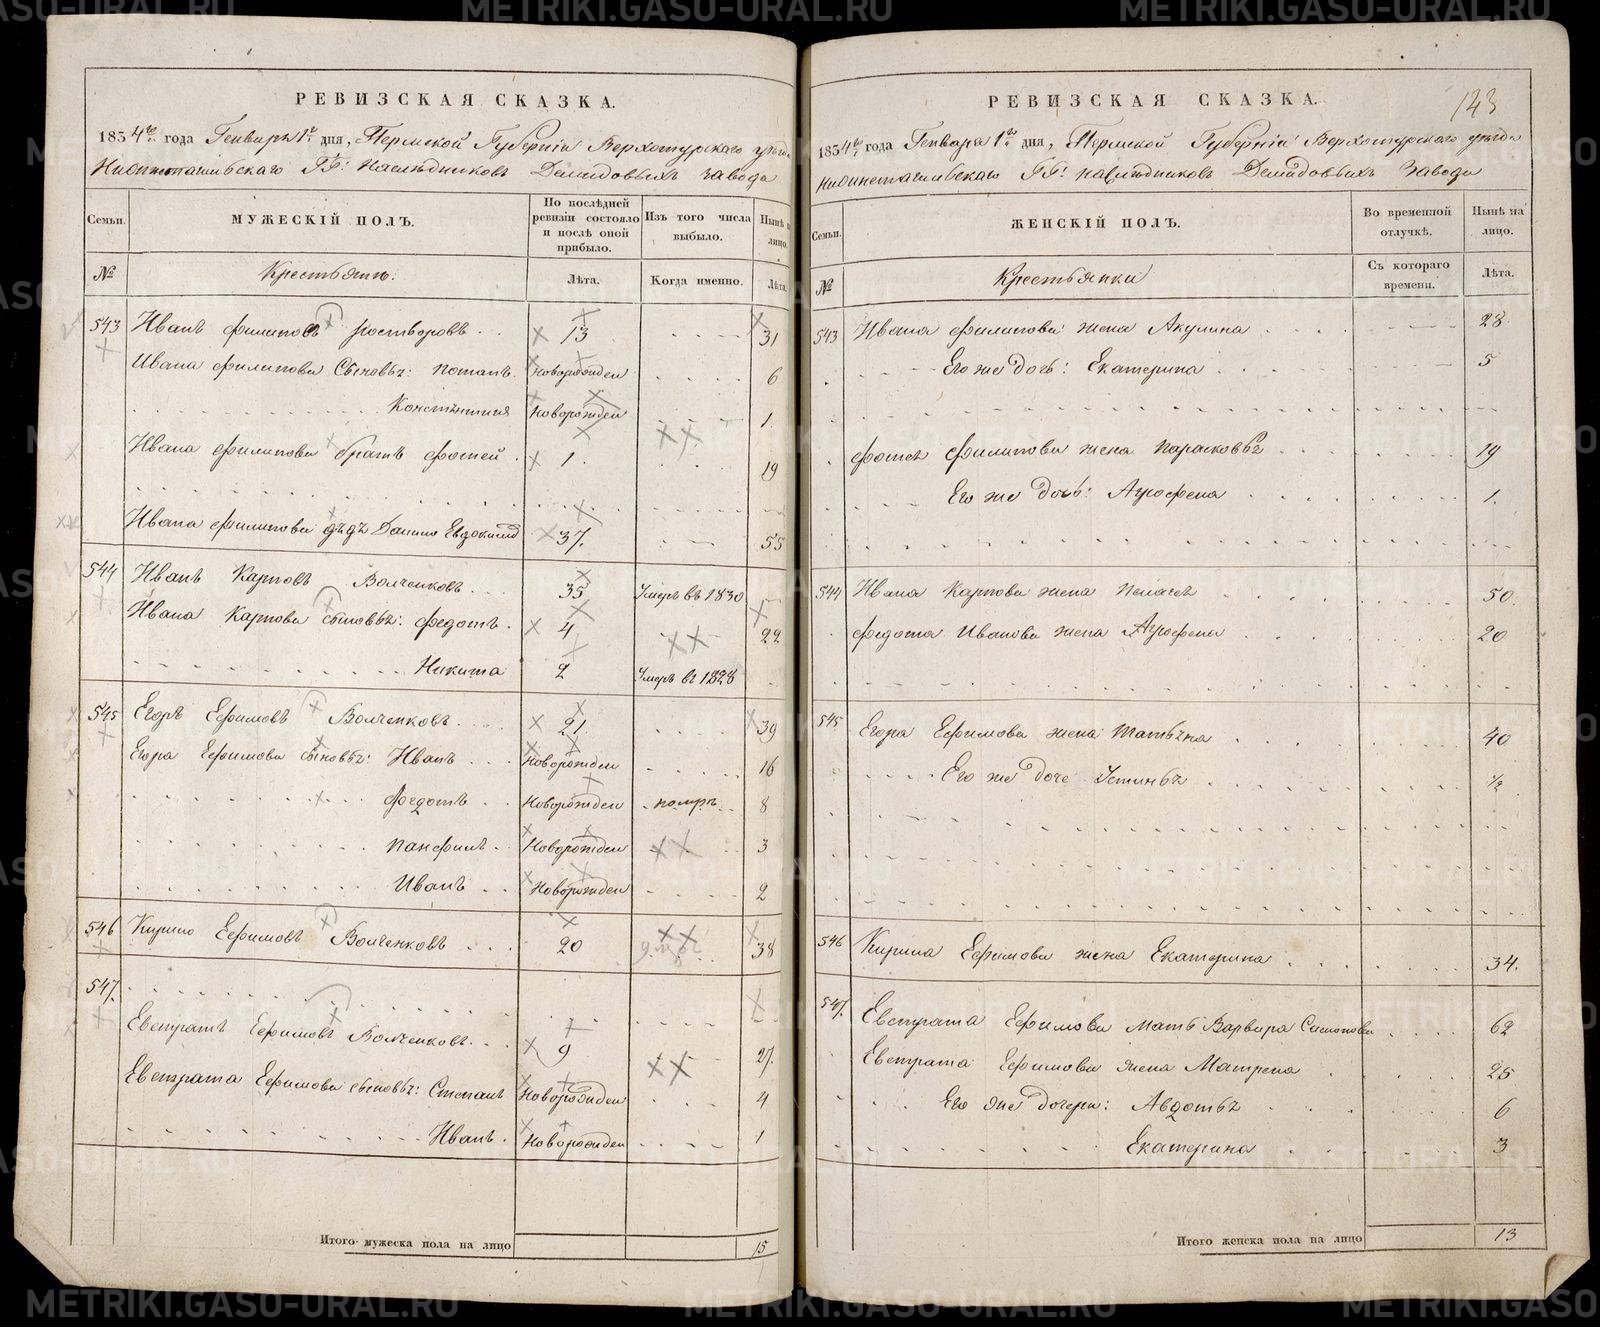 РЕВИЗСКАЯ СКАЗКА.
1834го года Генваря 1го дня, Пермской Губерніи Верхотурскаго уѣзда
Нижнетагильскаго ГГ: Наслѣдниковъ Демидовыхъ завода
Семьи. МУЖЕСКІЙ ПОЛЪ. По послѣдней ревизіи состояло и послѣ оной прибыло. Изъ того числа выбыло. Нынѣ на лицо.
№ Крестьянъ. Лѣта. Когда именно. Лѣта.
543 Иванъ Филиповъ Ростворовъ 13 31
Ивана Филипова Сыновьъ: Потапъ Новорожден 6
Констянтинъ Новорожден 1
Ивана Филипова братъ Фотей 1 19
Ивана Филипова дѣдъ Данило Евдокимов 37. 55
544 Иванъ Карповъ Волченковъ 35 Умеръ въ 1830
Ивана Карпова сыновьъ: Федотъ 4 22
Никита 2 Умеръ въ 1828
545 Егоръ Ефимовъ Волченковъ 21 39
Егора Ефимова сыновьъ: Иванъ Новорожден 16
Федотъ Новорожден помръ 8
Панфилъ Новорожден 3
Иванъ Новорожден 2
546 Кирило Ефимовъ Волченковъ 20 38
547.
Евстратъ Ефимовъ Волченковъ 9 27.
Евстрата Ефимова сыновьъ: Степанъ Новорожден 4
Иванъ Новорожден 1
Итого мужеска пола на лицо 15
РЕВИЗСКАЯ СКАЗКА.
143
1834го года Генваря 1го дня, Пермской Губерніи Верхотурскаго уѣзда
Нижнетагильскаго ГГ: наслѣдниковъ Демидовыхъ Завода
Семьи. ЖЕНСКІЙ ПОЛЪ. Во временной отлучкѣ. Нынѣ на лицо.
№ Крестьянки Съ котораго времени. Лѣта.
543 Ивана Филипова жена Акулина 28
Его же дочь: Екатерина 5
Фотея Филипова жена Парасковья 19
Его же дочь: Агрофена 1.
544 Ивана Карпова жена Пелагея 50.
Федота Иванова жена Агрофена 20
545 Егора Ефимова жена Татьяна 40
Его же дочь Устинья ½
546 Кирила Ефимова жена Екатерина 34.
547. Евстрата Ефимова мать Варвара Симонова 62
Евстрата Ефимова жена Матрена 25
Его же дочери: Авдотья 6
Екатерина 3
Итого женска пола на лицо 13
METRIKI.GASO-URAL.RU